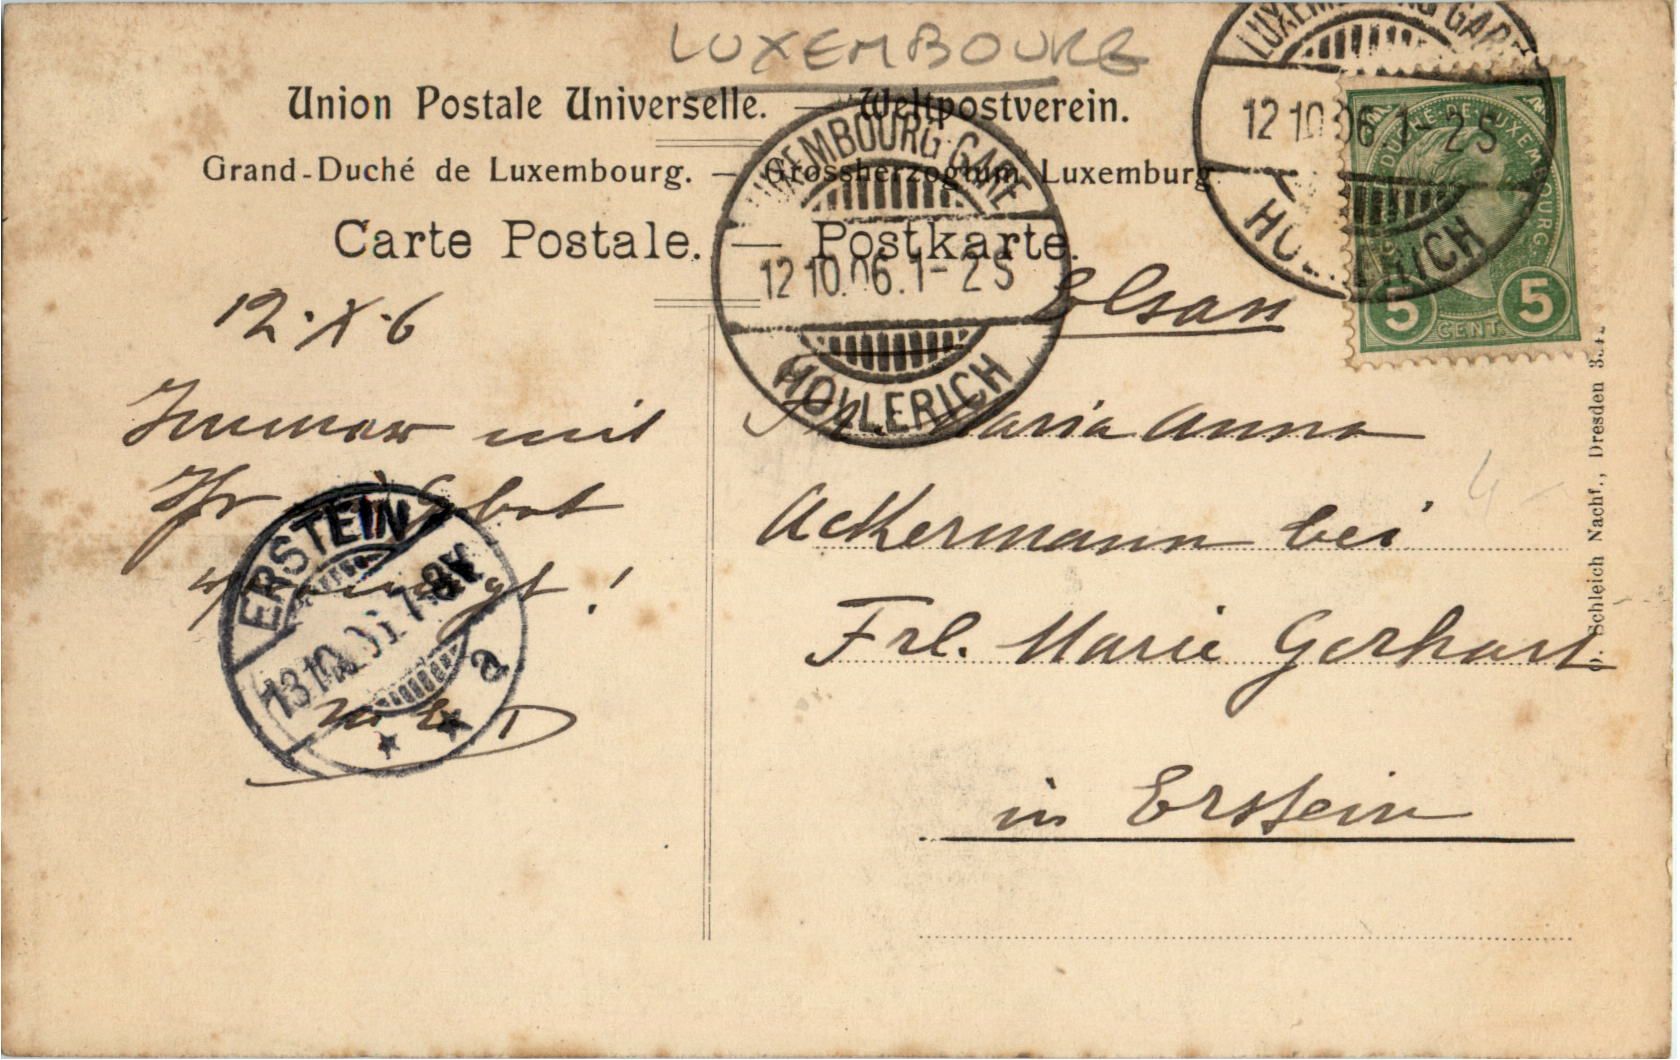 LUXEMBOURG
Union Postale Universelle. — Weltpostverein.
Grand-Duché de Luxembourg. — Grossherzogtum Luxemburg.
Carte Postale. — Postkarte.
LUXEMBOURG GARE
12 10 06. 1-2S
HOLLERICH
LUXEMBOURG GARE
12 10. 06. 1-2S
HOLLERICH
GRAND DUCHÉ DE LUXEMBOURG
5 CENT. 5
12.X.6
Immer mit
Ihr
!
ERSTEIN
13.10.06. 7-8V.
a
Elsass
Frl. Maria Anna
Ackermann bei
Frl. Marie Gerhart
in Erstein
Schleich Nachf., Dresden